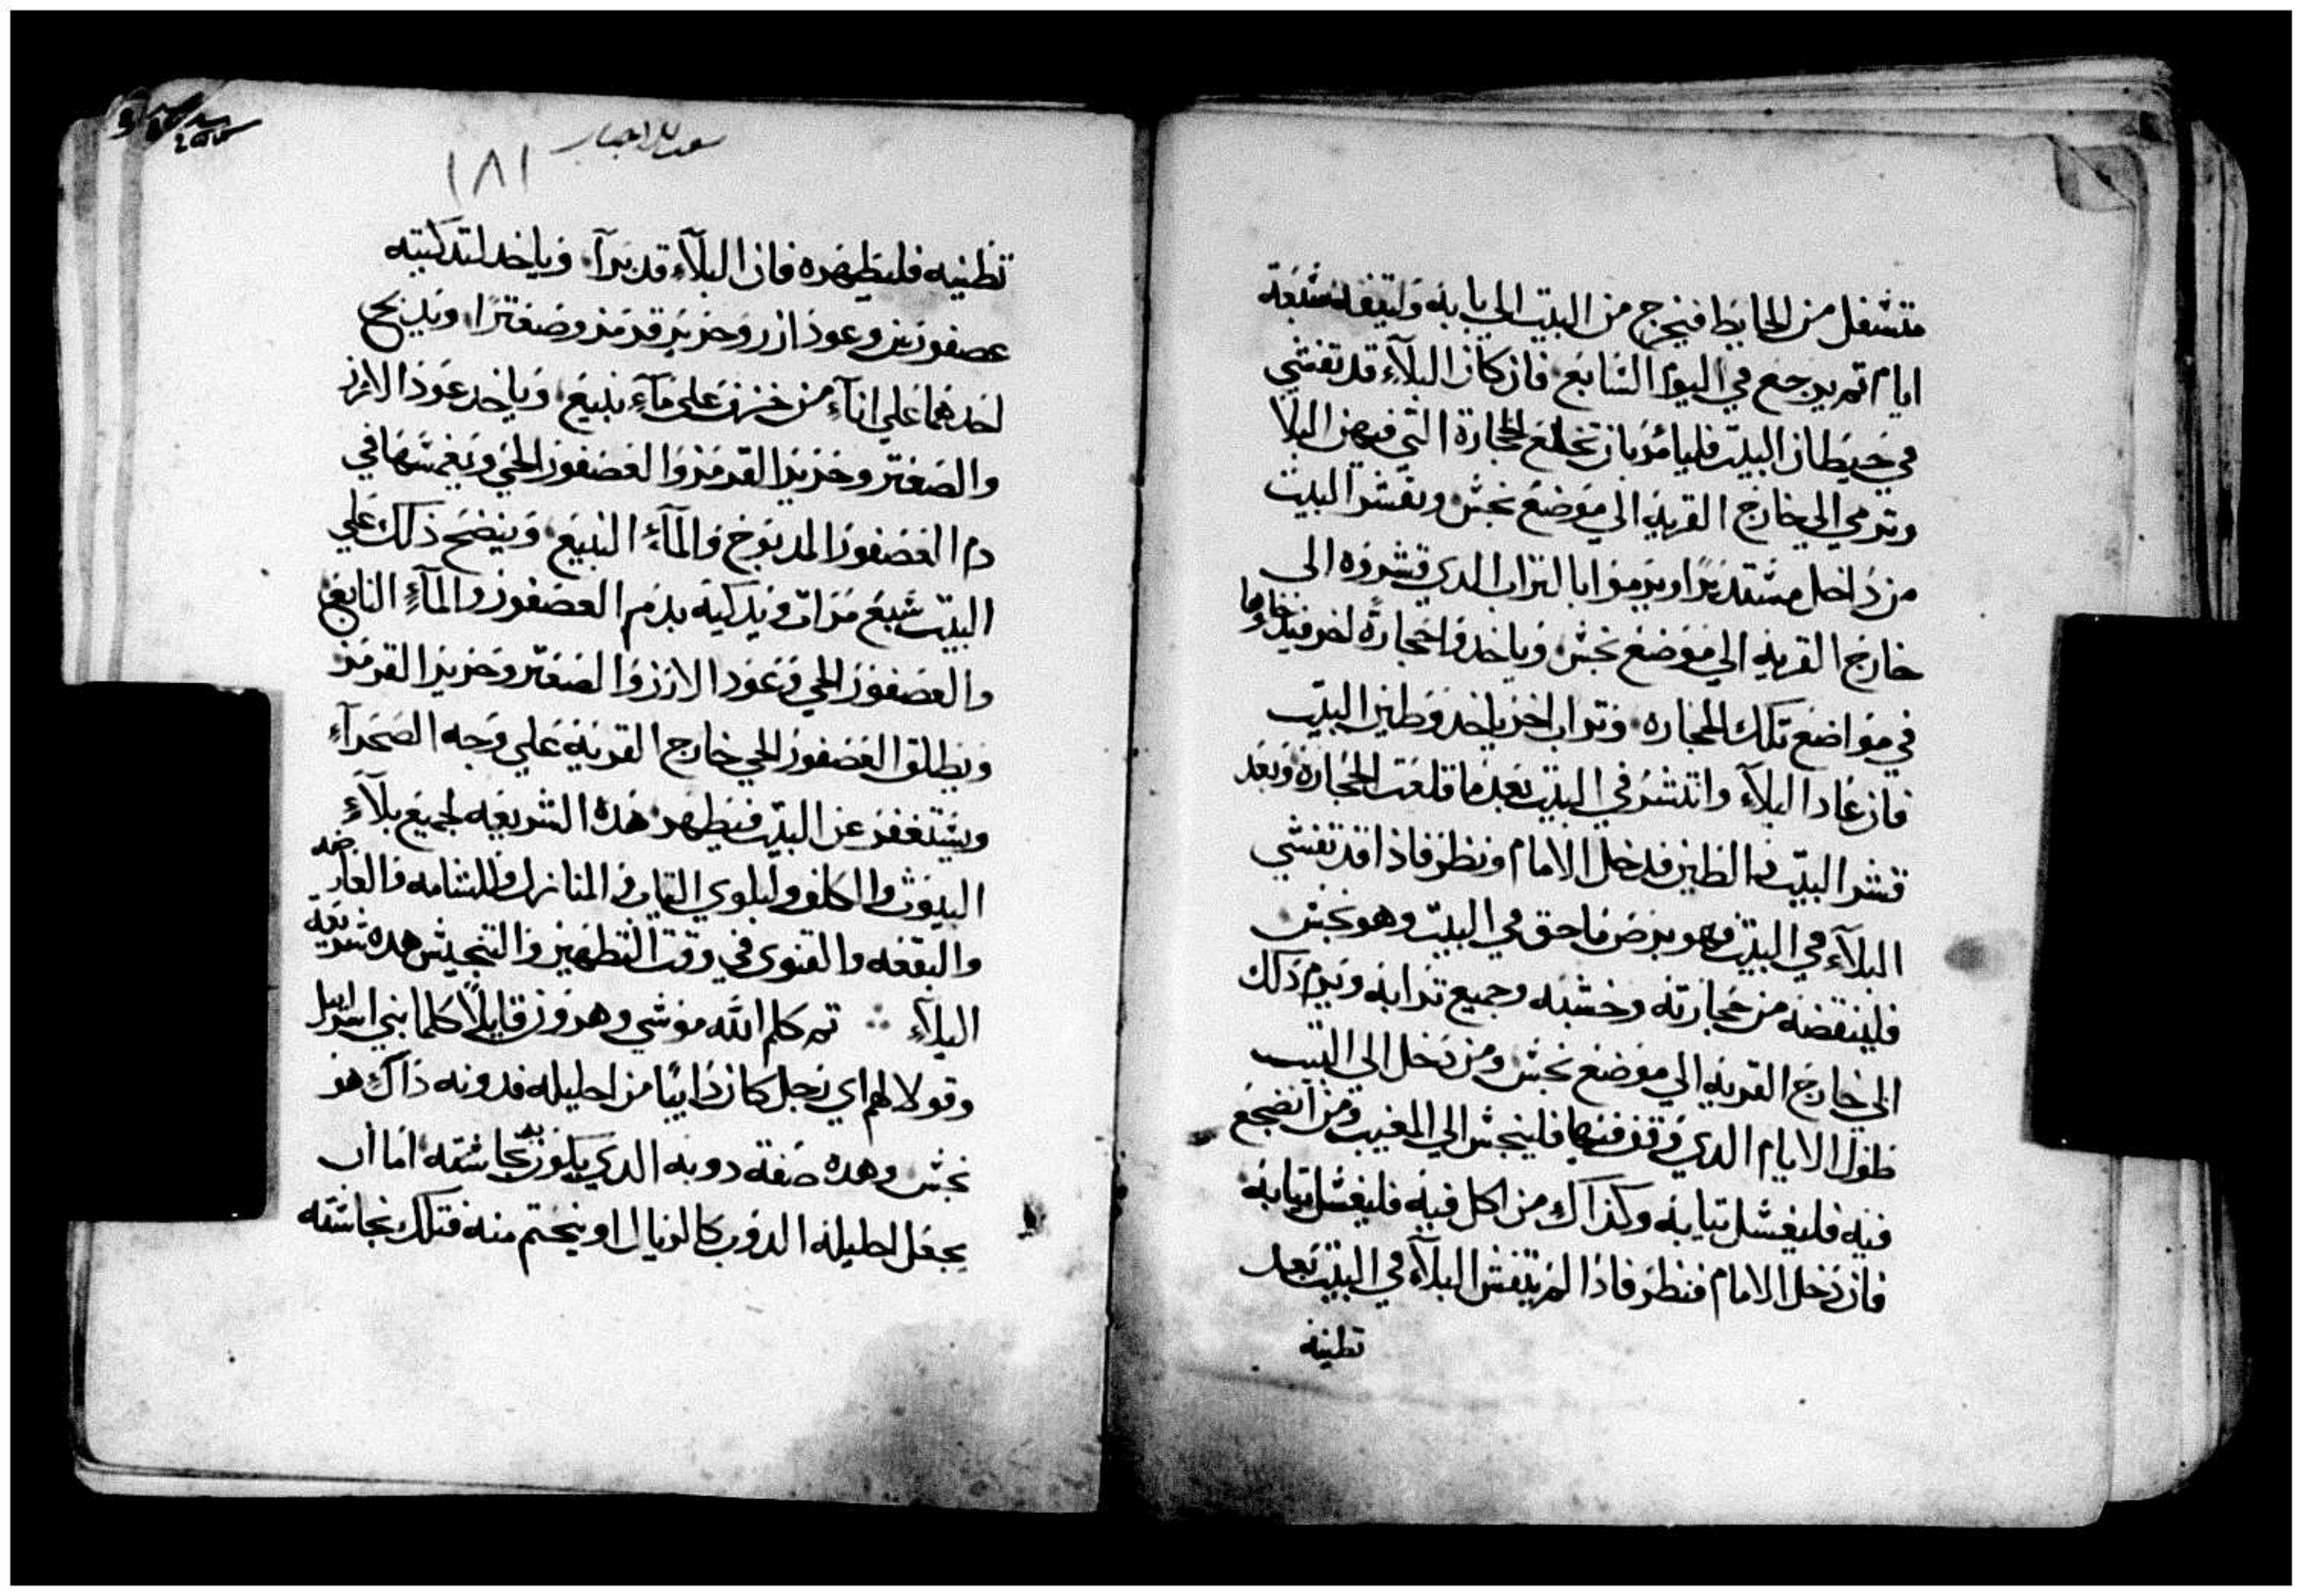 متسفل من الحايط فيخرج من البيت الي بابه وليقفله سبعة
ايام تم يرجع في اليوم السابع فان كان البلاء قد تفشي
في حيطان البيت فليامر بان تخلع الحجارة التي فيهن البلا
وترمي الي خارج القريه الي موضع نجس ويقشر البيت
من داخل مستديرا ويرموا بالتراب الدي قشروه الى
خارج القريه الي موضع نجس وياخدوا حجارة اخر فيدخلوها
في مواضع تلك الحجاره وتراب اخر ياخد وطين البيت
فان عاد البلاء وانتشر في البيت بعد ما قلعت الحجارة وبعد
قشر البيت والطين فدخل الامام ونظر فاذا قد تفشي
البلاء في البيت فهو برص ماحق في البيت وهو نجس
فلينقضه من حجارته وخشبه وجميع ترابه ويرم ذلك
الي خارج القريه الي موضع نجس ومن دخل الى البيت
طول الايام الدي وقف فيها فلينجس الي المغيب ومن انضجع
فيه فليغسل تيابه وكذاك من اكل فيه فليغسل تيابه
فان دخل الامام فنظر فاذا لم يتفش البلاء في البيت بعد
تطينه
سفر الاحبار
١٨١
تطينه فليطهره فان البلاء قد برآ وياخد لتدكيته
عصفورين وعود ارز وحرير قرمز وصعترا ويدبح
احدهما علي اناء من خزف على ماء ينبيع وياخد عود الارز
والصعتر وحرير القرمز والعصفور الحي ويغمسها في
دم العصفور المدبوح والماء الينبيع وينضح ذلك علي
البيت سبع مرات ويدكيه بدم العصفور والماء النابع
والعصفور الحي وعود الارز والصعتر وحرير القرمز
ويطلق العصفور الحي خارج القرية علي وجه الصحراء
ويستغفر عن البيت فيطهر هده الشريعه لجميع بلاء
البيوت والكلف ولبلوي التياب والمنازل وللشامه والعارضه
والبقعه والقتوى في وقت التطهير والتنجيس هده شريعة
البلاء ∴ تم كلم الله موسي وهرون قايلا كلما بني اسرايل
وقولا لهم اي رجل كان دايبا من احليله فدوبه ذاك هو
نجس وهده صفة دوبه الدي يكون به نجاسته اما ان
يجعل احليله الدوب كالريال او يختم منه فتلك نجاسته